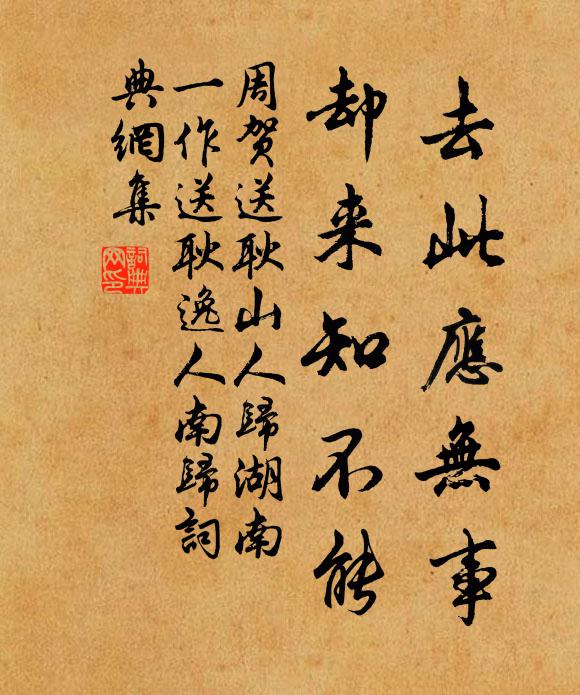 去此應無事
却来知不能
周賀送耿山人歸湖南
一作送耿逸人南歸詞
典網集
詞典網印